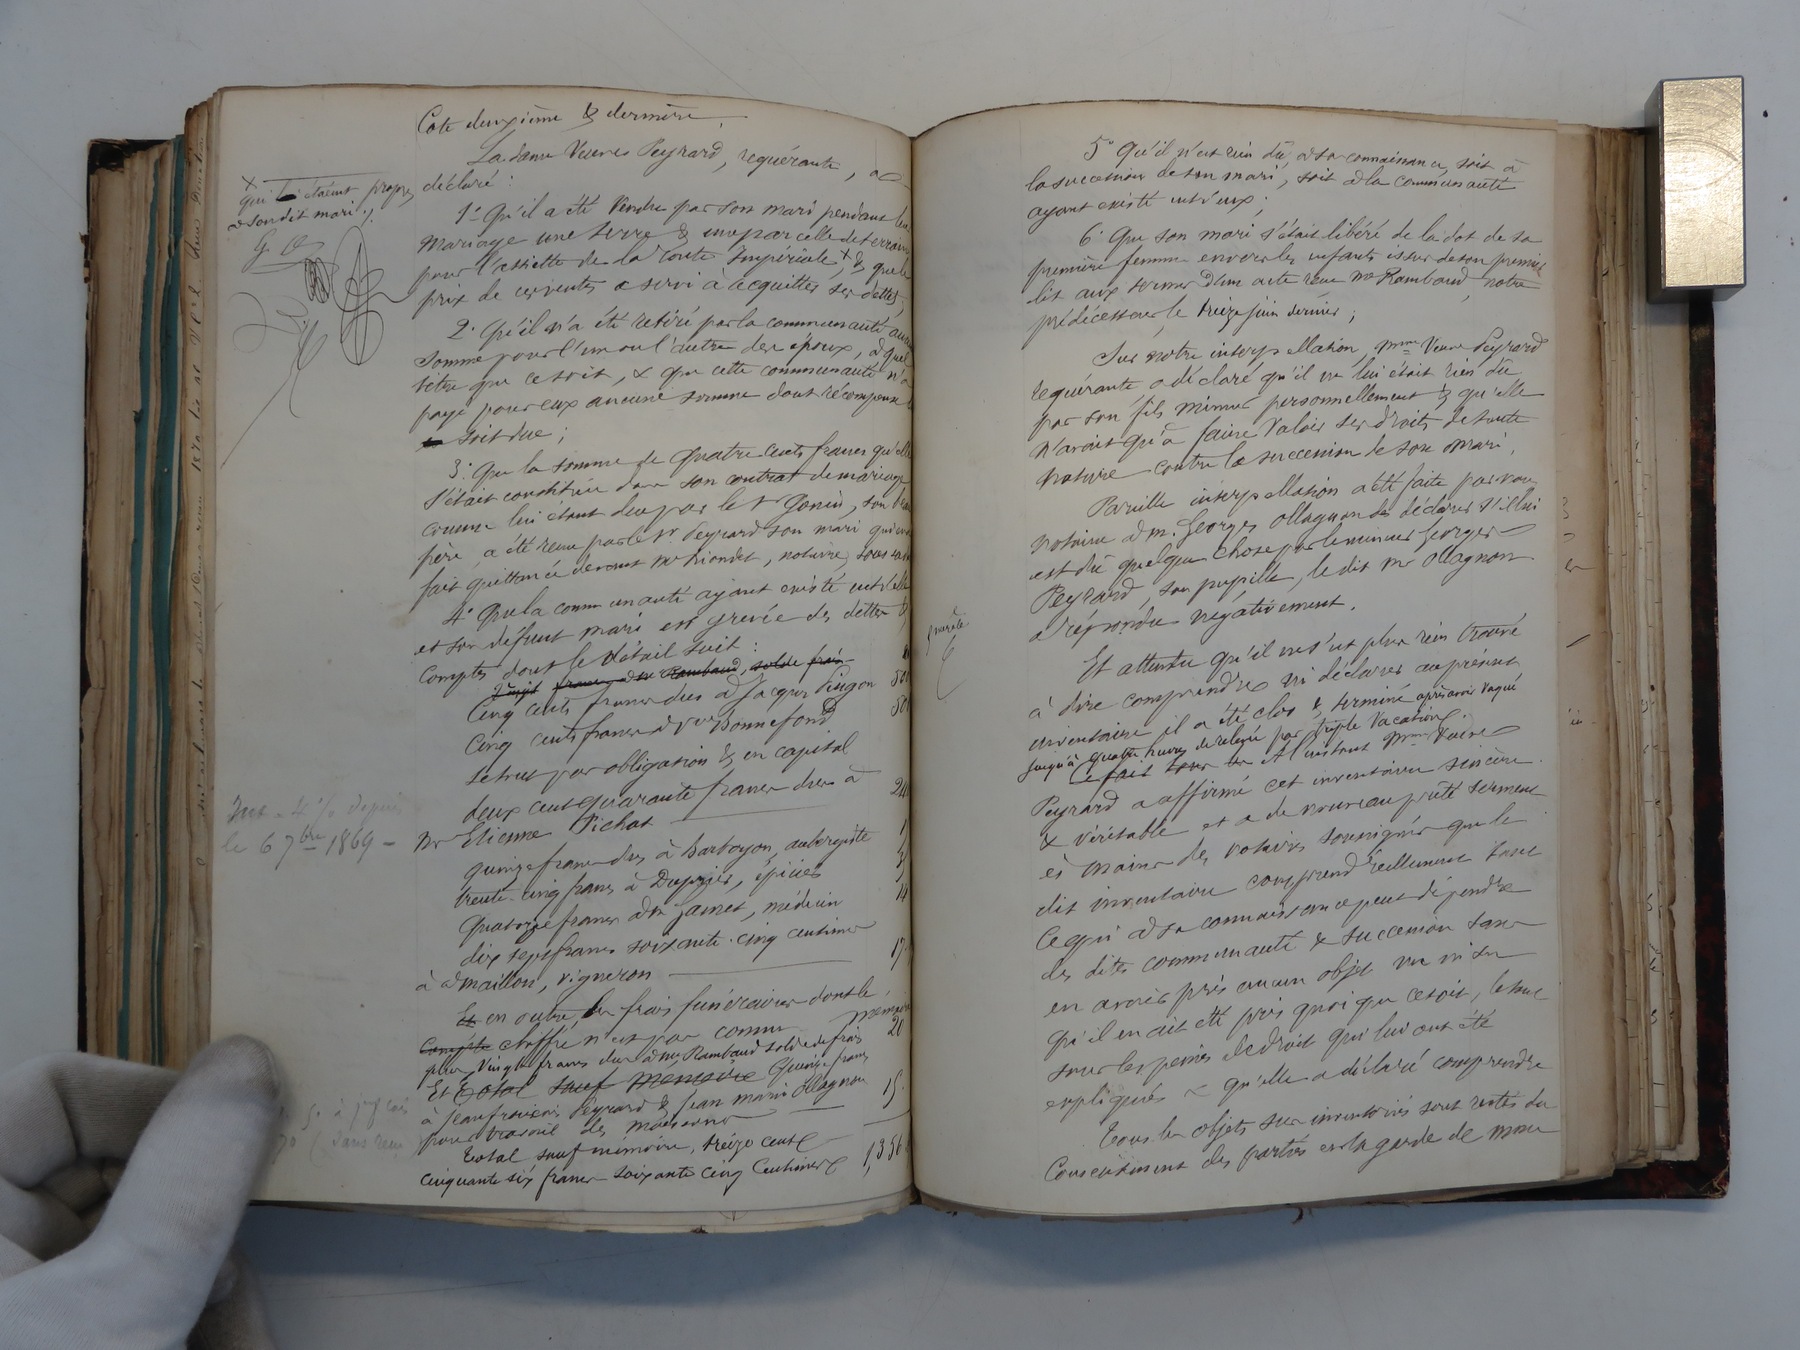 Cote deuxième & dernière.
La dame Veuve Peyrard, requérante, a
déclaré :
x qui étaient propres
à son dit mari ./.
1° Qu'il a été vendu par son mari pendant leur
mariage une terre & une parcelle de terrain
pour l'assiette de la route Impériale, x & que le
prix de ces ventes a servi à acquitter ses dettes,
2° Qu'il n'a été retiré par la communauté aucune
somme pour l'un ou l'autre des époux, à quel
titre que ce soit, & que cette communauté n'a
payé pour eux aucune somme dont récompense
soit due ;
3° Que la somme de quatre cents francs qu'elle
s'était constituée dans son contrat de mariage
comme lui étant due par le Sr Gonin, son beau
père, a été reçue par le Sr Peyrard son mari qui en a
fait quittance devant Me Riondet, notaire, sous sa date
4° Que la communauté ayant existé entr'elle
et son défunt mari est grevée des dettes &
comptes dont le détail suit :
Vingt francs à Me Rambaud, solde frais
Cinq cents francs dus à Jacques Pingon 500
Cinq cents francs à Bonnefond 500
le tout par obligation & en capital
deux cent quarante francs dus à
Mr Etienne Pichat 240
Int. 4 % depuis
le 6 7bre 1869 -
quinze francs dus à Barboyon, aubergiste
trente-cinq francs à Dupuis, épicier
quatorze francs à Mr Jamet, médecin 14
dix sept francs soixante-cinq centimes
à Maillon, vigneron 17
Et en outre, les frais funéraires dont le
compte chiffre n'est pas connu mémoire
plus, Vingt francs dus à Me Rambaud solde de frais 20
Et Total sauf mémoire Quinze francs
à Jean françois Peyrard & Jean marie Ollagnon 15
pour travail des moissons
Total sauf mémoire, treize cent
cinquante six francs soixante cinq centimes 1,356
5° Qu'il n'est rien dû, à sa connaissance, soit à
la succession de son mari, soit à la communauté
ayant existé entr'eux ;
6° Que son mari s'était libéré de la dot de sa
première femme envers les enfants issus de son premier
lit aux termes d'un acte reçu Me Rambaud, notre
prédécesseur, le treize juin dernier ;
Sur notre interpellation, Mme Veuve Peyrard
requérante a déclaré qu'il ne lui était rien dû
par son fils mineur personnellement & qu'elle
n'avait qu'à faire valoir ses droits de toute
nature contre la succession de son mari.
Pareille interpellation a été faite par nous
notaire à M. Georges Ollagnon de déclarer s'il lui
est dû quelque chose par le mineur Georges
Peyrard, son pupille, le dit Mr Ollagnon
a répondu négativement.
Et attendu qu'il ne s'est plus rien trouvé
à dire comprendre ni déclarer au présent
inventaire il a été clos & terminé après avoir vaqué
jusqu'à quatre heures de relevée par triple vacation.
Ce fait A l'instant Mme Veuve
Peyrard a affirmé cet inventaire sincère
& véritable et a de nouveau prêté serment
ès mains des notaires soussignés que le
dit inventaire comprend réellement tout
ce qui à sa connaissance peut dépendre
des dites communauté & succession sans
en avoir pris aucun objet vu ni su
qu'il en ait été pris quoique ce soit, le tout
sous les peines de droit qui lui ont été
expliquées & qu'elle a déclaré comprendre
Tous les objets sus inventoriés sont restés du
consentement des parties en la garde de Mme